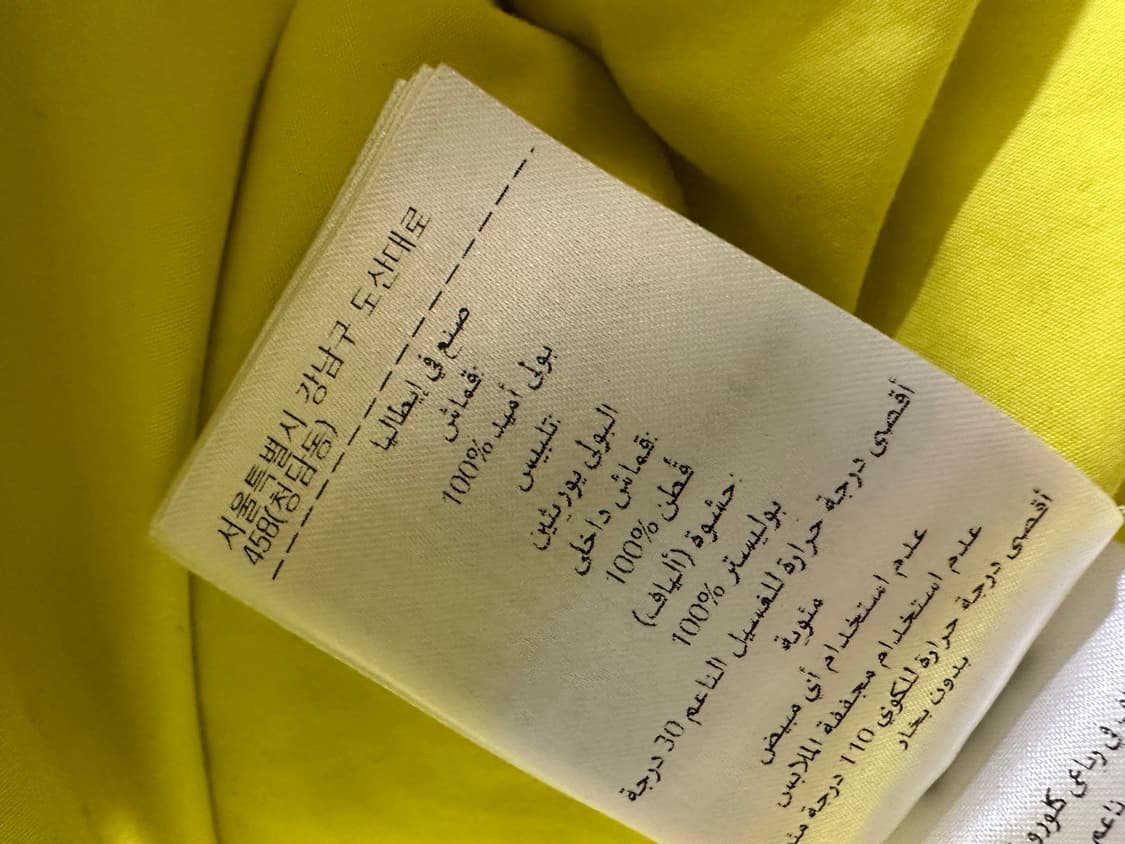 서울특별시 강남구 도산대로
458(청담동)
صنع في إيطاليا
قماش:
بولي أميد %100
تلبيس:
البولي يوريثين
قماش داخلي:
قطن %100
حشوة (ألياف):
بوليستر %100
أقصى درجة حرارة للغسيل الناعم 30 درجة
مئوية
عدم استخدام أي مبيض
عدم استخدام مجففة الملابس
أقصى درجة حرارة للكوي 110 درجة
بدون بخار
رباعي
ناعم